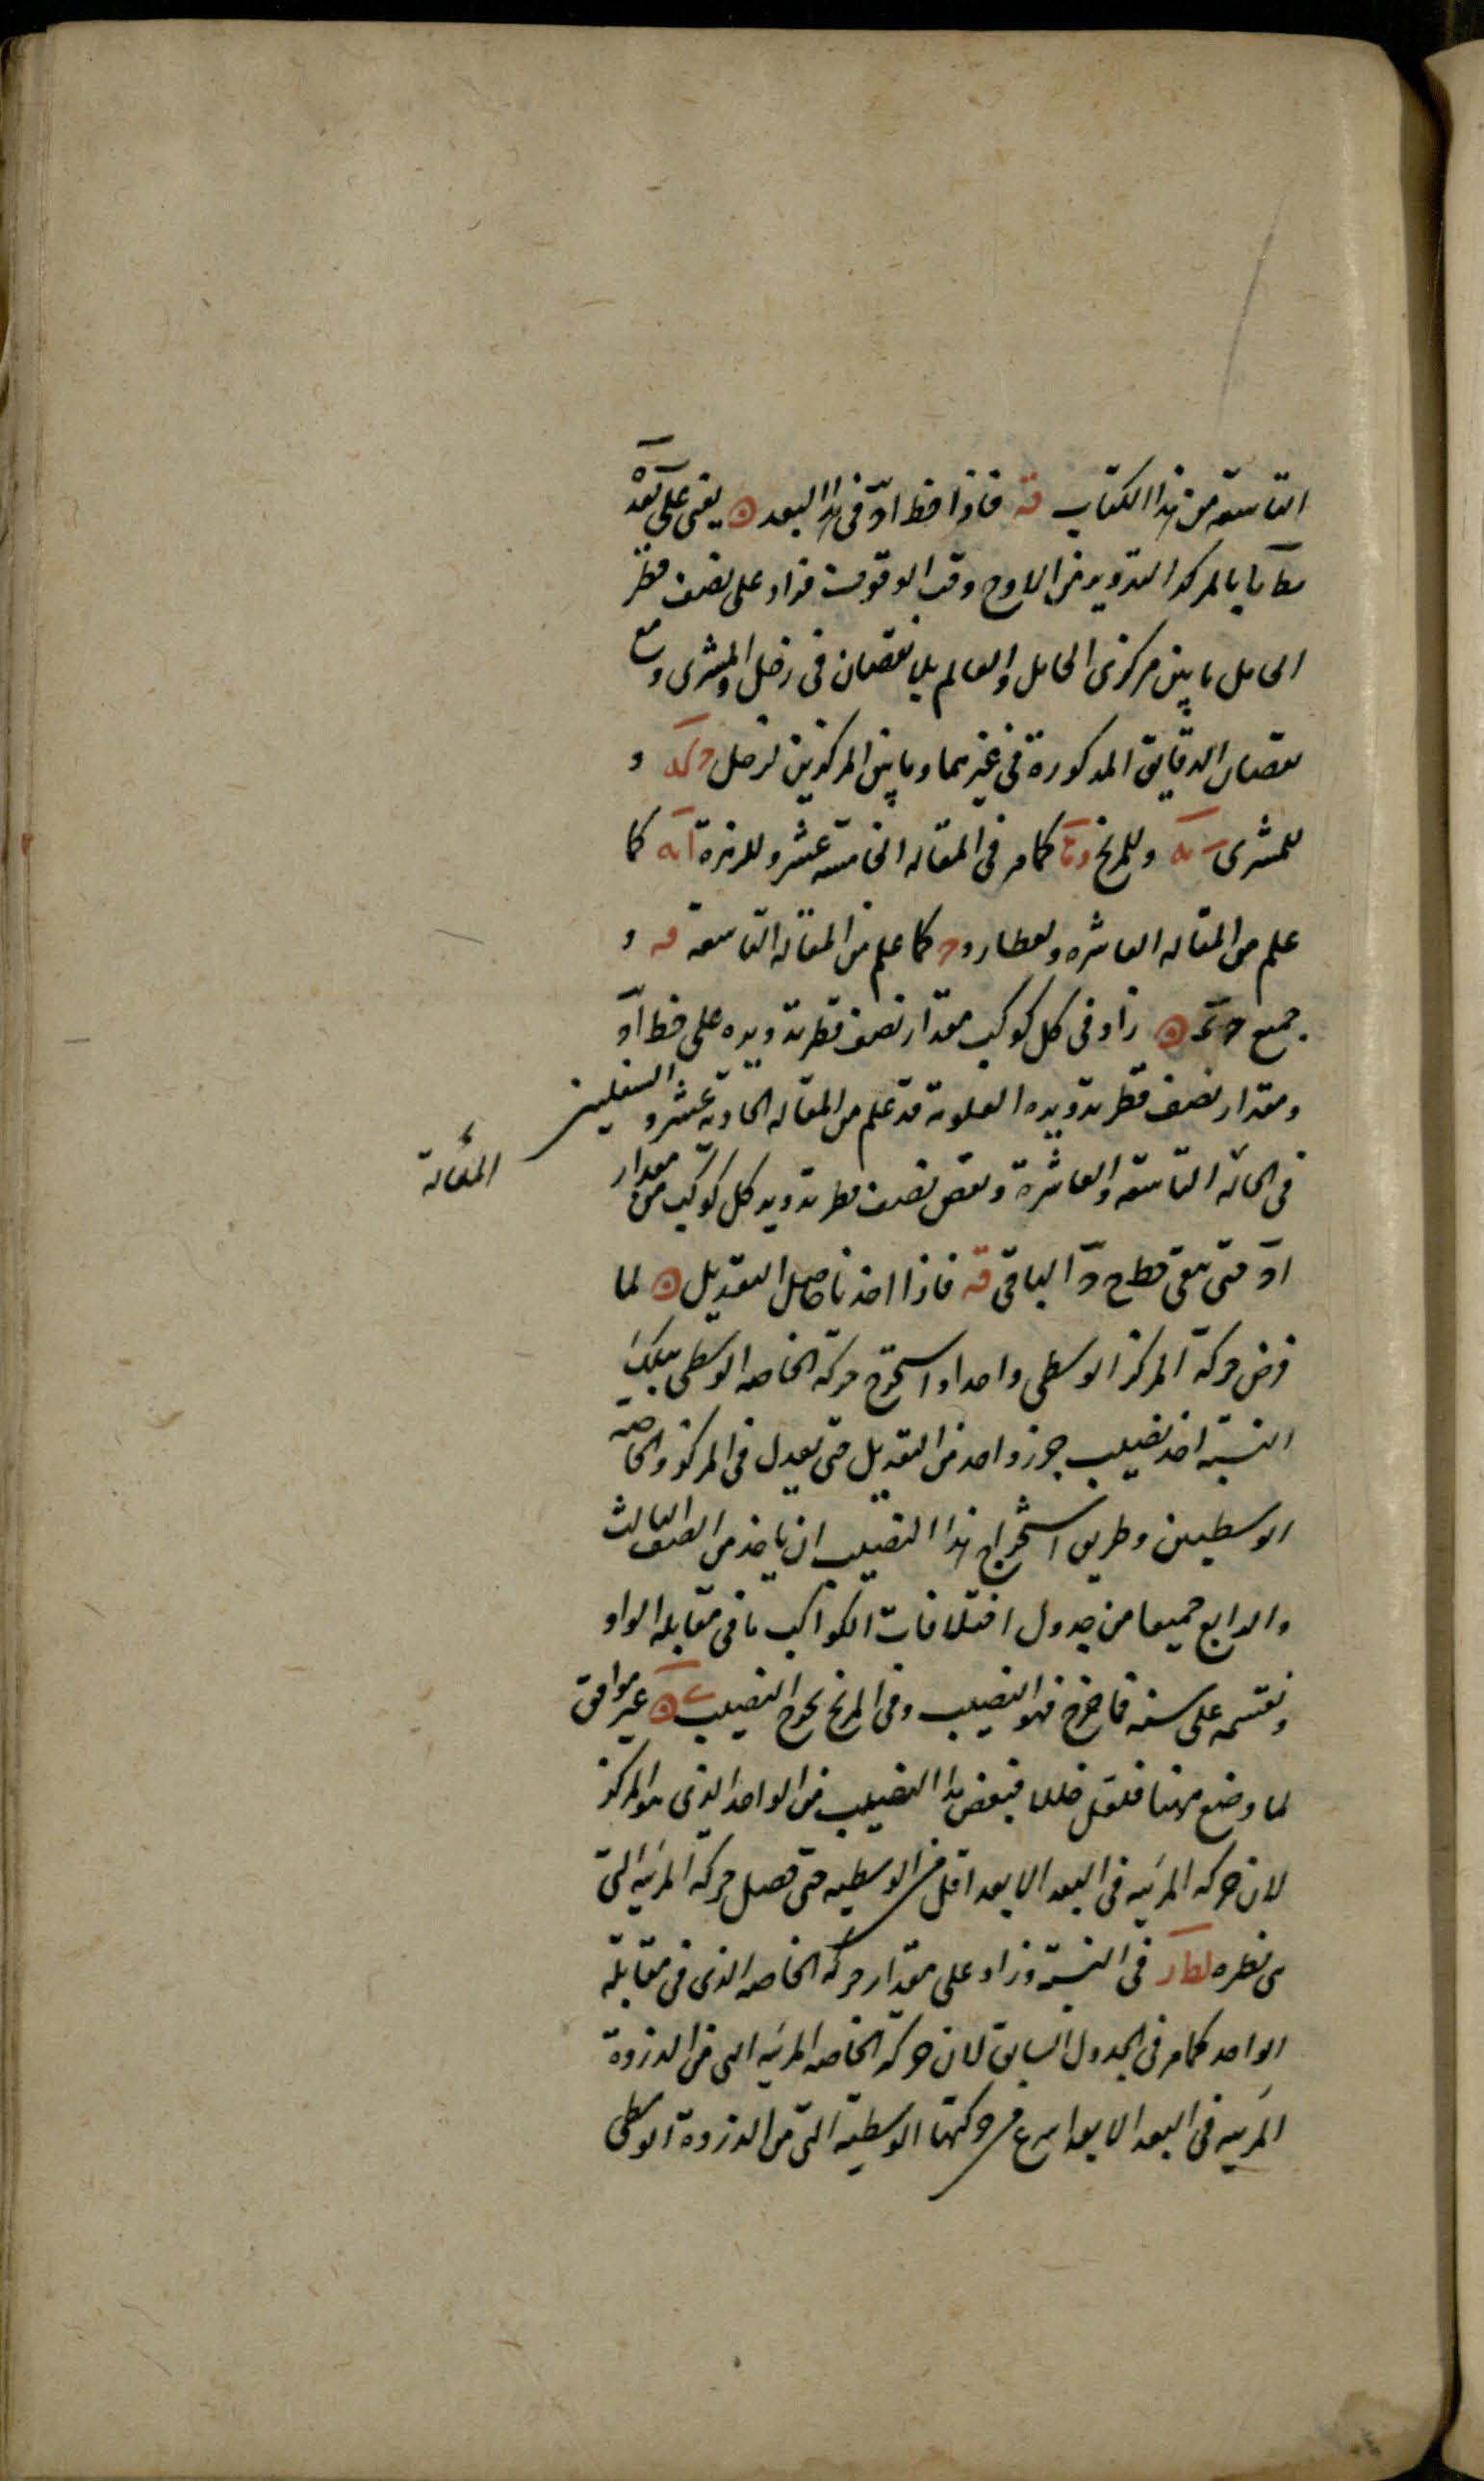 التاسعة من هذا الكتاب قه فاذا خط اد فى هذا البعد ه يعنى على
بالمركز التدوير من الاوج وقت الوقوف فزاد على نصف قطر
الحامل ما بين مركزى الحامل والعالم بلا نقصان فى زحل والمشترى ومع
نقصان الدقايق المذكورة فى غيرهما وما بين المركزين لزحل و
للمشترى وللمريخ كما مر فى المقاله الخامسة عشر وللزهرة كما
علم من المقاله العاشره ولعطارد كما علم من المقالة التاسعة قه و
جميع ه زاد فى كل كوكب مقدار نصف قطر تدويره على خط اد
ومقدار نصف قطر تدويره العلوية قد علم من المقاله الحادية عشر و السفليين
المقالة
فى الحالة التاسعة والعاشرة ونقص نصف قطر تدوير كل كوكب من مقدار
اد حتى بقى خط الباقى قه فاذا اخذنا حاصل التعديل ه لما
فرض حركة المركز الوسطى واحدا واستخرج حركة الخاصه الوسطى بتلك
النسبة اخذ نصيب جزء واحد من التعديل حتى يعدل فى المركز والخاصه
الوسطيين وطريق استخراج هذا النصيب ان ياخذ من الصف الثالث
والرابع جميعا من جدول اختلافات الكواكب ما فى مقابلة الواو
ونقسمه على سته فما خرج فهو النصيب وفى المريخ يخرج النصيب غير موافق
لما وضع هنا فنقص هذا النصيب من الواحد الذى هو المركز
لان حركة المرئيه فى البعد الابعد اقل من الوسطيه حتى حصل حركة المرئيه التى
فى النسبة وزاد على مقدار حركة الخاصه الذى فى مقابلة
الواحد كما مر فى الجدول السابق لان حركة الخاصه المرئيه التى من الذروة
المرئيه فى البعد الابعد اسرع من حركتها الوسطية التى من الذروة الوسطى